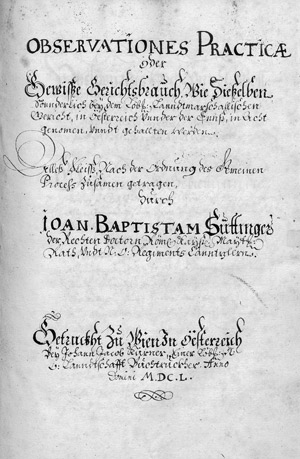 OBSERVATIONES PRACTICÆ
oder
Gewisse Gerichtsbräuch, Wie Dieselben
Sonderlich bey dem Löbl: Lanndtmarschallischen
Gericht, in Oesterreich Vnnder der Ennß, in Acht
genomen, Vnndt gehallten werden.
Alles Fleiß, Nach der Ordnung des Gemeinen
Process Zusamen getragen,
durch
IOAN. BAPTISTAM Süttinger
der Rechten Doctorn Röm: Kayß: Maytt:
Rath, Vndt N: Ö: Regiments Canntzlern.
Getruckht Zu Wien In Oesterreich
Bey Johann Jacob Kürner, Einer Löbl:
Ö: Lanndtschafft Buchtruckher Anno
Domini M.DC.L.